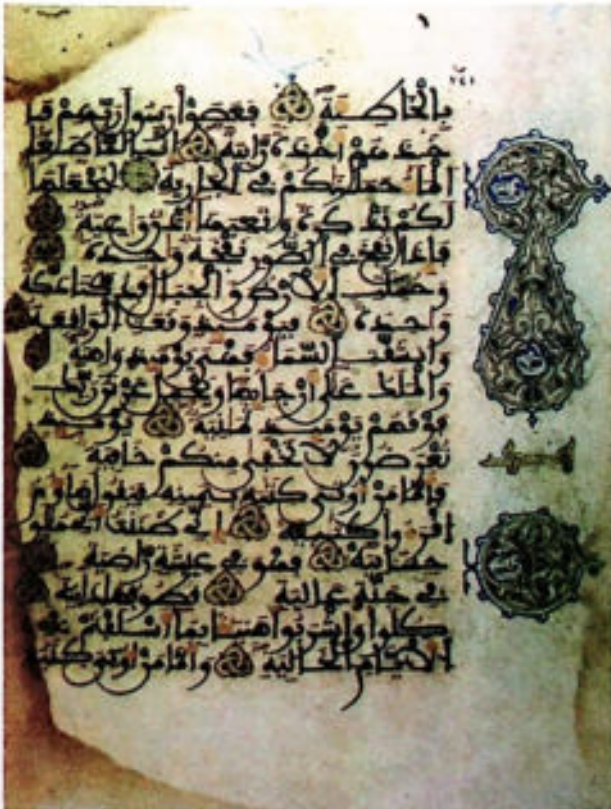 ٢٤١
بالخاطية فعصوا رسول ربهم فأ
خذهم أخذة رابية إنا لما طغا
الماء حملنكم في الجارية لنجعلها
لكم تذكرة وتعيها أذن واعية
فإذا نفخ في الصور نفخة واحدة
وحملت الأرض والجبال فدكتا دكة
واحدة فيومئذ وقعت الواقعة
وانشقت السماء فهي يومئذ واهية
والملك على أرجائها ويحمل عرش ربك
فوقهم يومئذ ثمنية يومئذ
تعرضون لا تخفى منكم خافية
فأما من أوتي كتبه بيمينه فيقول هاؤم
اقرءوا كتبيه إني ظننت أني ملق
حسابيه فهو في عيشة راضية
في جنة عالية قطوفها دانية
كلوا واشربوا هنيئا بما أسلفتم في
الأيام الخالية وأما من أوتي كتبه